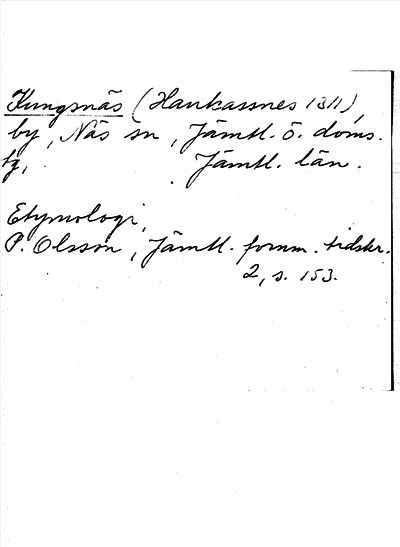 Kungsnäs (Haukassnes 1311)
by, Näs sn, Jämtl. ö. doms.
tg, Jämtl. län.
Etymologi,
P. Olsson, Jämtl. fornm. tidskr.
2, s. 153.